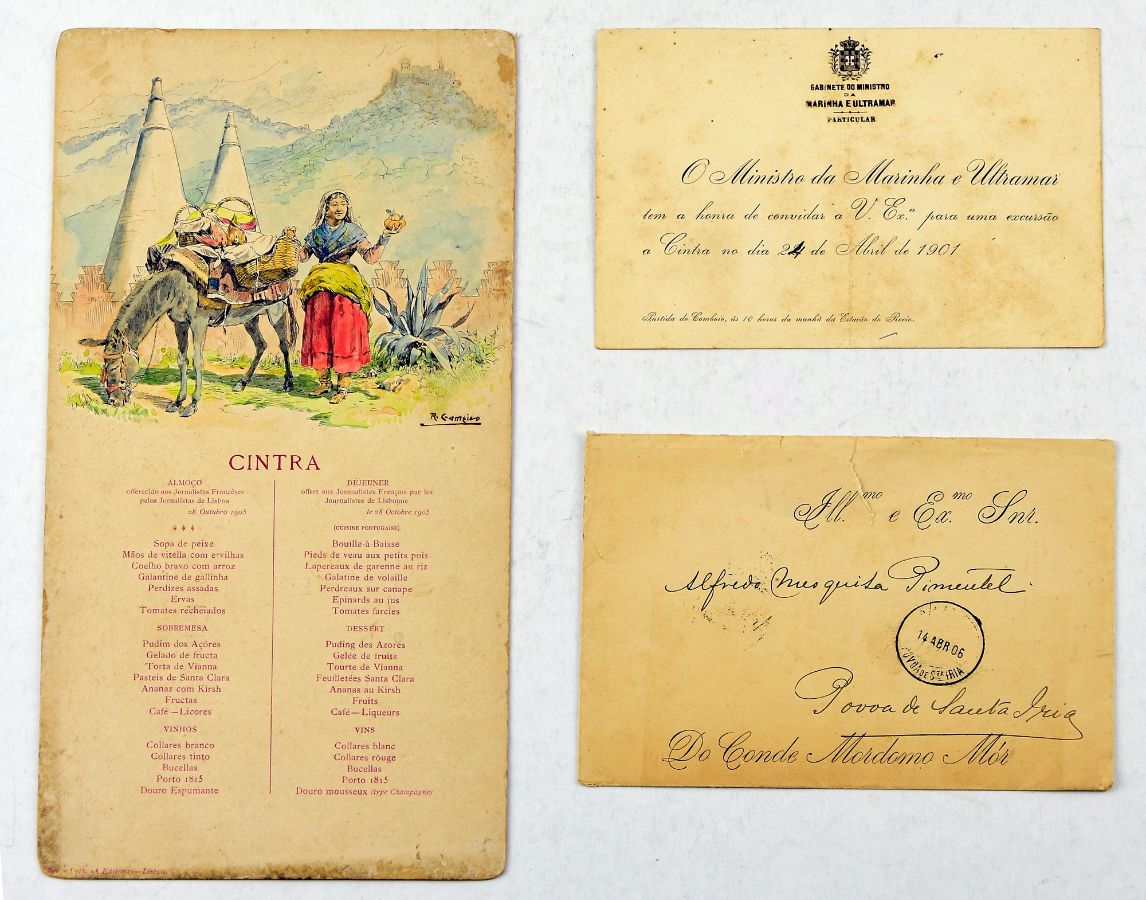 R. Gameiro
CINTRA
ALMOÇO
offerecido aos Jornalistas Francêses
pelos Jornalistas de Lisboa
28 Outubro 1905
Sopa de peixe
Mãos de vitella com ervilhas
Coelho bravo com arroz
Galantine de gallinha
Perdizes assadas
Ervas
Tomates recheiados
SOBREMESA
Pudim dos Açôres
Gelado de fructa
Torta de Vianna
Pasteis de Santa Clara
Ananaz com Kirsh
Fructas
Café—Licores
VINHOS
Collares branco
Collares tinto
Bucellas
Porto 1815
Douro Espumante
DÉJEUNER
offert aux Journalistes Français par les
Journalistes de Lisbonne
le 28 Octobre 1905
(CUISINE PORTUGAISE)
Bouille-à-Baisse
Pieds de veau aux petits pois
Lapereaux de garenne au riz
Galatine de volaille
Perdreaux sur canape
Epinards au jus
Tomates farcies
DESSERT
Puding des Azores
Gelée de fruits
Tourte de Vianna
Feuilletées Santa Clara
Ananas au Kirsh
Fruits
Café—Liqueurs
VINS
Collares blanc
Collares rouge
Bucellas
Porto 1815
Douro mousseux (type Champagne)
«A Editora»—Lisboa
GABINETE DO MINISTRO
DA
MARINHA E ULTRAMAR
PARTICULAR
O Ministro da Marinha e Ultramar
tem a honra de convidar a V. Ex.ª para uma excursão
a Cintra no dia 24 de Abril de 1901
Partida do Comboio, ás 10 horas da manhã da Estação do Rocio.
Ill.mo e Ex.mo Snr.
Alfredo Mesquita Pimentel
14 ABR 06
POVOA DE STA IRIA
Povoa de Santa Iria
Do Conde Mordomo Mór